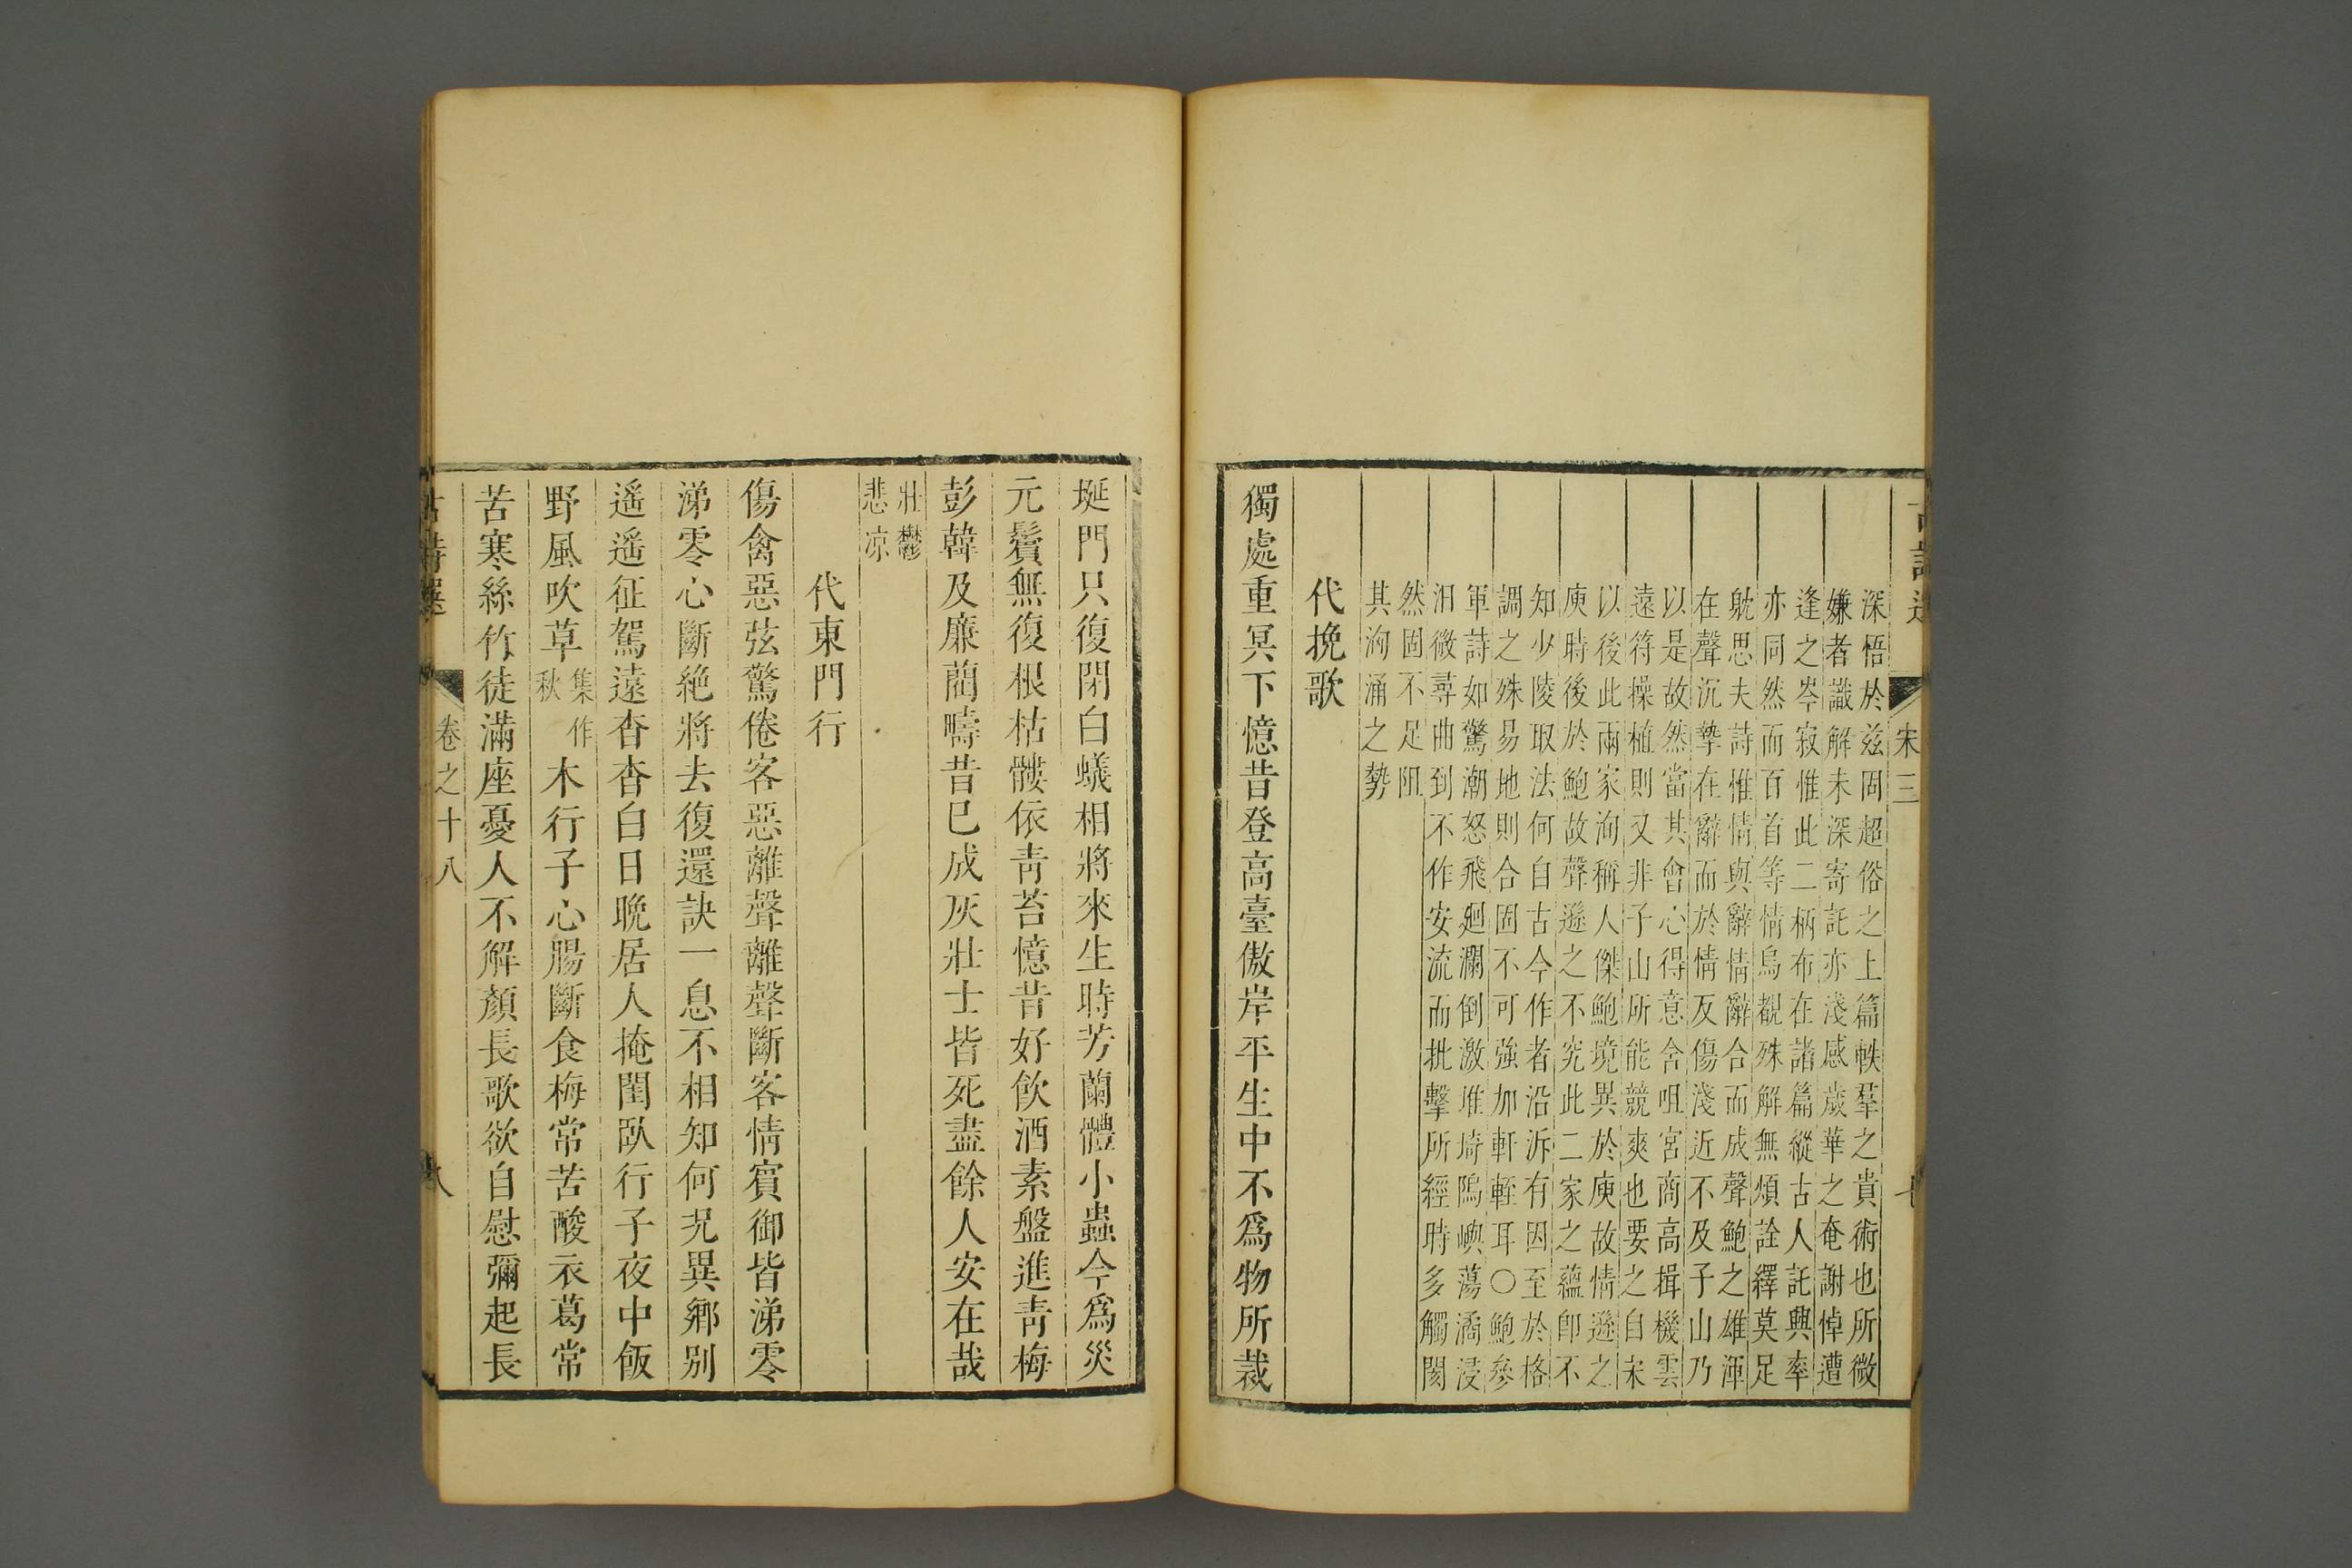 宋三
深悟於兹固超俗之上篇軼羣之貴術也所微
嫌者識解未深寄託亦淺感歲華之奄謝悼遭
逢之岑寂惟此二柄布在諸篇縱古人託興率
亦同然而百首等情烏覩殊解無煩詮繹莫足
躭思夫詩惟情與辭情辭合而成聲鮑之雄渾
在聲沉摯在辭而於情反傷淺近不及子山乃
以是故然當其會心得意含咀宮商高揖機雲
遠符操植則又非子山所能競爽也要之自宋
以後此兩家洵稱人傑鮑境異於庾故情遜之
庾時後於鮑故聲遜之不究此二家之蘊即不
知少陵取法何自古今作者沿泝有因至於格
調之殊易地則合固不可強加軒輊耳○鮑參
軍詩如驚潮怒飛廻瀾倒激堆埼隖嶼蕩潏浸
汨微尋曲到不作安流而批擊所經時多觸閡
然固不足阻
其洶涌之勢
代挽歌
獨處重冥下憶昔登高臺傲岸平生中不爲物所裁
埏門只復閉白蟻相將來生時芳蘭體小蟲今爲災
元鬢無復根枯髏依靑苔憶昔好飲酒素盤進靑梅
彭韓及廉藺疇昔已成灰壯士皆死盡餘人安在哉
壯鬱
悲凉
代東門行
傷禽惡弦驚倦客惡離聲離聲斷客情賓御皆涕零
涕零心斷絶將去復還訣一息不相知何况異鄉別
遙遙征駕遠杳杳白日晩居人掩閨臥行子夜中飯
野風吹草集作秋木行子心腸斷食梅常苦酸衣葛常
苦寒絲竹徒滿座憂人不解顏長歌欲自慰彌起長
卷之十八
八